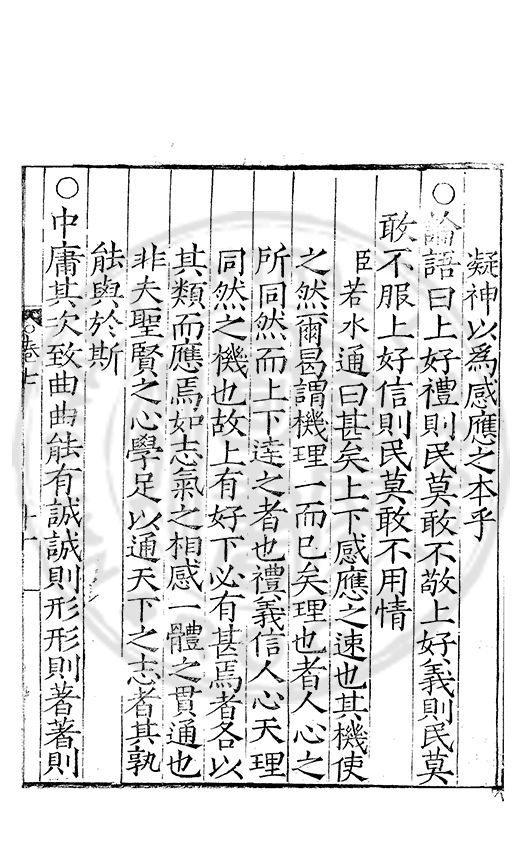 凝神以爲感應之本乎
○論語曰上好禮則民莫敢不敬上好義則民莫
敢不服上好信則民莫敢不用情
臣若水通曰甚矣上下感應之速也其機使
之然爾曷謂機理一而已矣理也者人心之
所同然而上下逹之者也禮義信人心天理
同然之機也故上有好下必有甚焉者各以
其類而應焉如志氣之相感一體之貫通也
非夫聖賢之心學足以通天下之志者其孰
能與於斯
○中庸其次致曲曲能有誠誠則形形則著著則
卷七
十一